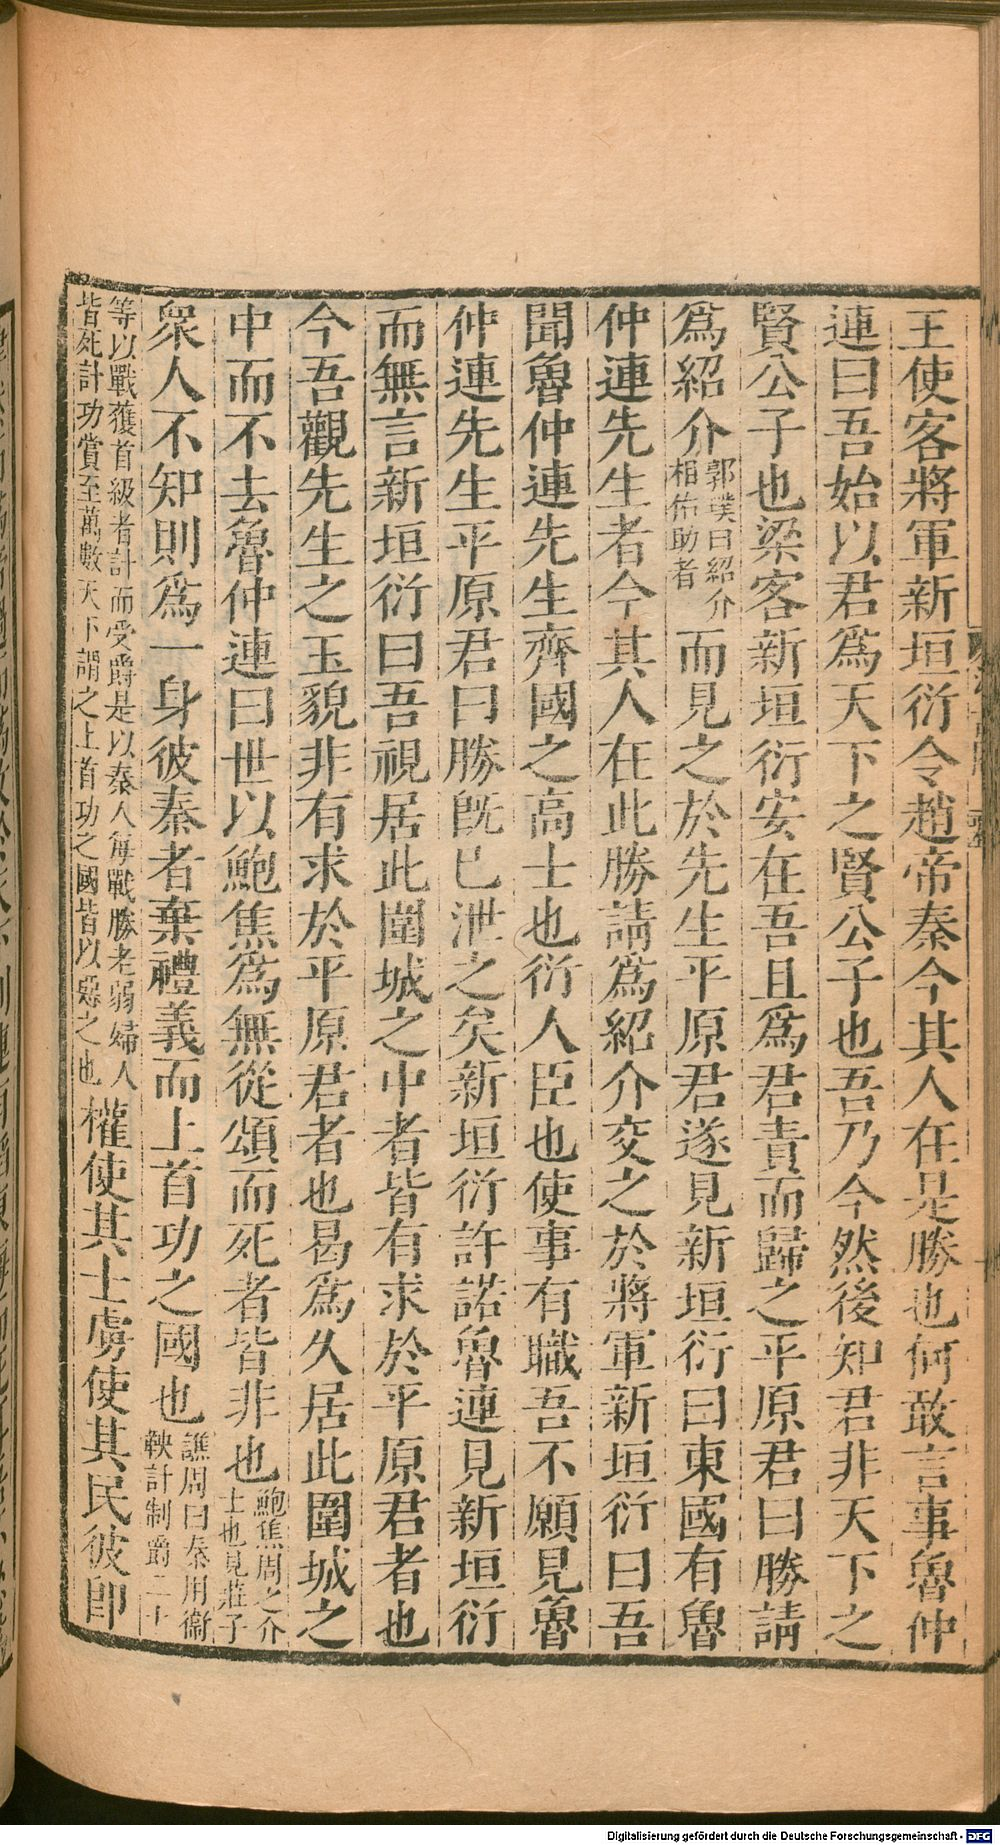 王使客將軍新垣衍令趙帝秦今其人在是勝也何敢言事魯仲
連曰吾始以君爲天下之賢公子也吾乃今然後知君非天下之
賢公子也梁客新垣衍安在吾且爲君責而歸之平原君曰勝請
爲紹介郭璞曰紹介相佑助者而見之於先生平原君遂見新垣衍曰東國有魯
仲連先生者今其人在此勝請爲紹介交之於將軍新垣衍曰吾
聞魯仲連先生齊國之高士也衍人臣也使事有職吾不願見魯
仲連先生平原君曰勝旣已泄之矣新垣衍許諾魯連見新垣衍
而無言新垣衍曰吾視居此圍城之中者皆有求於平原君者也
今吾觀先生之玉貌非有求於平原君者也曷爲久居此圍城之
中而不去魯仲連曰世以鮑焦爲無從頌而死者皆非也鮑焦周之介士也見莊子
衆人不知則爲一身彼秦者棄禮義而上首功之國也譙周曰秦用衞鞅計制爵二十
等以戰獲首級者計而受爵是以秦人每戰勝老弱婦人皆死計功賞至萬數天下謂之上首功之國皆以惡之也權使其士虜使其民彼卽
Digitalisierung gefördert durch die Deutsche Forschungsgemeinschaft - DFG